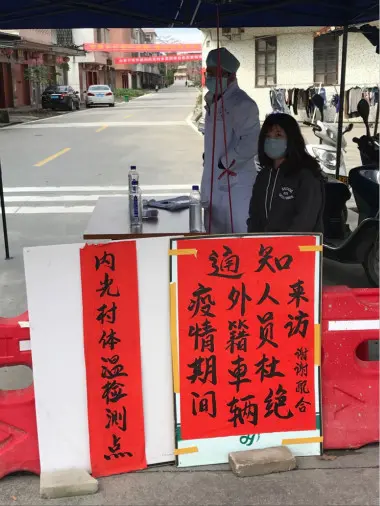 内光村体温检测点
通知
疫情期间
外籍車辆
人员杜绝
来访
谢谢配合